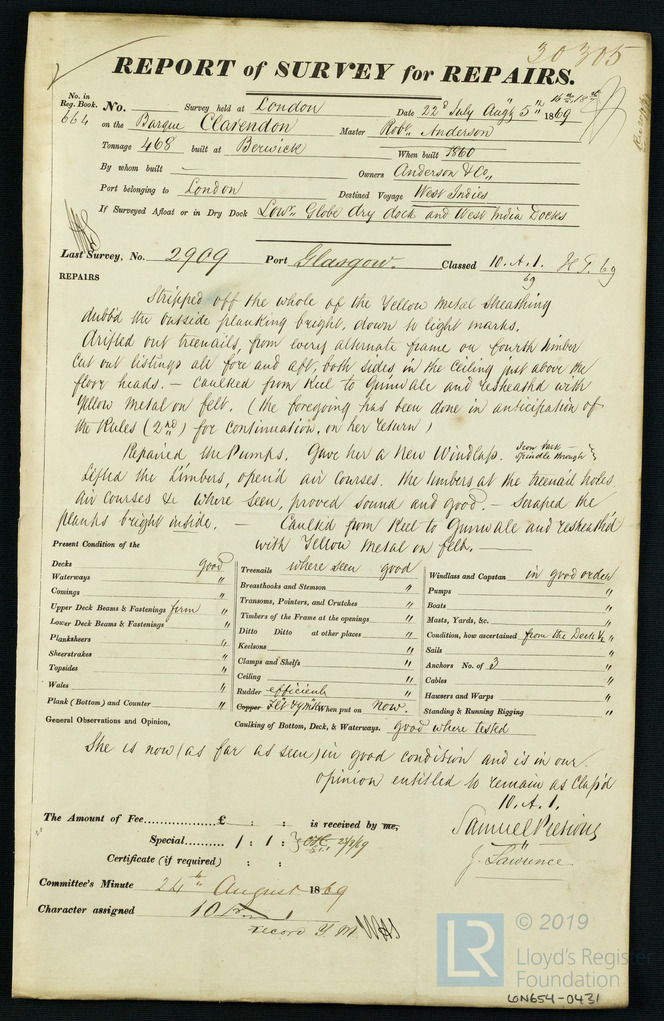 30305
REPORT of SURVEY for REPAIRS.
No. in Reg. Book. No. Survey held at London Date 22d July Augt 5th 1869
664 on the Barque Clarendon Master Robt. Anderson
Tonnage 468 built at Berwick When built 1860
By whom built — Owners Anderson & Co,,
Port belonging to London Destined Voyage West Indies
If Surveyed Afloat or in Dry Dock Lowr. Globe dry dock and West India Docks
Last Survey, No. 2909 Port Glasgow. Classed 10. A. 1. 69
REPAIRS
Stripped off the whole of the Yellow Metal Sheathing
dubbd the outside planking bright, down to light marks.
drifted out treenails, from every alternate frame on fourth timber
Cut out listings all fore and aft, both sides in the ceiling just above the
floor heads. — Caulked from Keel to Gunwale and resheathd with
Yellow Metal on felt. (the foregoing has been done in anticipation of
the Rules (2nd) for Continuation, on her return)
Repaired the Pumps. Gave her a New Windlass. Spindle through
Lifted the Limbers, open'd air courses. The timbers at the treenail holes
air courses &c where seen, proved sound and good. — Scraped the
planks bright inside. — Caulked from Keel to Gunwale and resheath'd
with Yellow Metal on felt. —
Present Condition of the
Decks good
Waterways "
Comings "
Upper Deck Beams & Fastenings firm "
Lower Deck Beams & Fastenings "
Planksheers "
Sheerstrakes "
Topsides "
Wales "
Plank (Bottom) and Counter "
Treenails where seen good
Breasthooks and Stemson "
Transoms, Pointers, and Crutches "
Timbers of the Frame at the openings "
Ditto Ditto at other places "
Keelsons "
Clamps and Shelfs "
Ceiling "
Rudder efficient
Copper Felt & ym When put on Now.
Windlass and Capstan in good order
Pumps "
Boats "
Masts, Yards, &c. "
Condition, how ascertained from the Deck &c "
Sails "
Anchors No. of 3 "
Cables "
Hawsers and Warps "
Standing & Running Rigging "
General Observations and Opinion, Caulking of Bottom, Deck, & Waterways. good where tested
She is now (as far as seen) in good condition and is in our
opinion entitled to remain as Class'd
10. A. 1.
The Amount of Fee £ : : is received by me,
Special 1 : 1 :
Certificate (if required) : :
J. Lawrence
Committee's Minute 24th August 1869
Character assigned 10 A 1
record Y M
© 2019
LR Lloyd's Register
Foundation
LON654-0431